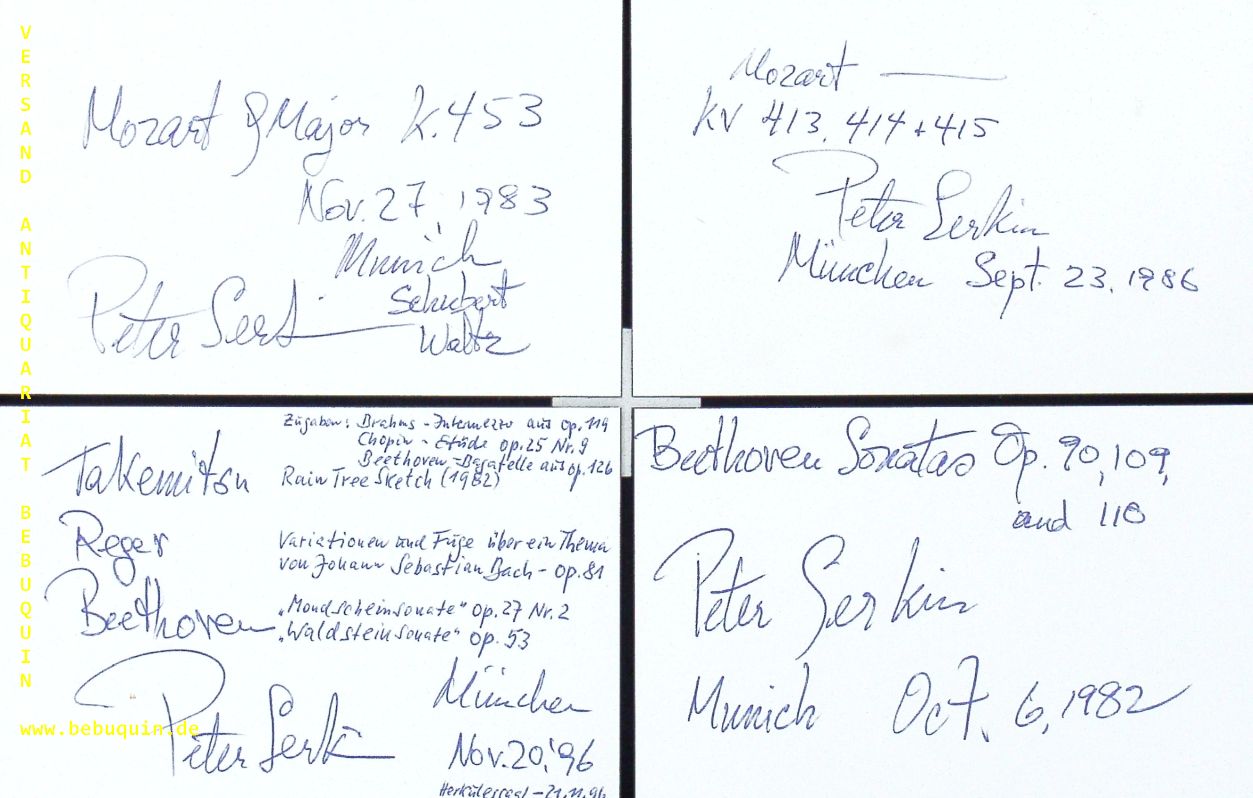 VERSAND ANTIQUARIAT BEBUQUIN
www.bebuquin.de
Mozart G Major K.453
Nov. 27, 1983
Munich
Schubert
Waltz
Peter Serkin
Mozart
KV 413, 414 + 415
Peter Serkin
München Sept. 23, 1986
Zugaben: Brahms - Intermezzo aus op. 119
Chopin - Etüde op. 25 Nr. 9
Beethoven - Bagatelle aus op. 126
Takemitsu Rain Tree Sketch (1982)
Reger Variationen und Fuge über ein Thema
von Johann Sebastian Bach - op. 81
Beethoven „Mondscheinsonate“ op. 27 Nr. 2
„Waldsteinsonate“ op. 53
München
Peter Serkin
Nov. 20, '96
Herkulessaal - 21.11.96
Beethoven Sonatas Op. 90, 109,
and 110
Peter Serkin
Munich Oct. 6, 1982